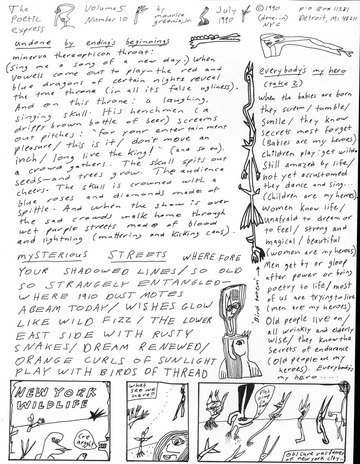 The
Poetic
express
Volume 5
Number 10
by
maurice
greenia, jr.
July
1990
©1990
(done in)
NYC
P.O. Box 11381
Detroit, MI 48211
undone by ending's beginnings
minerva theropticon throat:
(sing me a song of a new day) When
vowels come out to play the red and
blue dragons of certain nights reveal
the true throne (in all its false ugliness).
And on this throne: a laughing,
singing skull. His henchmen (a
drippy brown bottle of beer) screams
out pitches: for your entertainment
pleasure/this is it/don't move an
inch/long live the king!: (and so on).
a crowd gathers. The skull spits out
seeds—and trees grow. The audience
cheers. The skull is crowned with
blue roses and diamonds made of
spittle. And when the show is over
the sad crowds walk home through
wet purple streets made of blood
and lightning (muttering and kicking cans).
everybody's my hero
(take 2)
When the babies are born
they scream/tumble/
smile/they know
secrets most forget
(Babies are my heroes)
children play: get wild
still amazed by life/
not yet accustomed
they dance and sing...
(Children are my heroes)
Women know life/
unafraid to dream or
to feel/strong and
magical/beautiful
(women are my heroes)
Men get by or gloep
after power or bring
poetry to life/most
of us are trying to live
(men are my heroes)
Old people live on/
all wrinkly and elderly
wise/they know the
secrets of endurance
(old people are my
heroes). Everybody's
my hero......
Bird totem
mysterious streets WHERE FORE
YOUR SHADOWED LINES/SO OLD
SO STRANGELY ENTANGLED—
WHERE 1910 DUST MOTES
ABEAM TODAY/WISHES GLOW
LIKE WILD FIZZ/THE LOWER
EAST SIDE WITH RUSTY
SNAKES/DREAM RENEWED/
ORANGE CURLS OF SUNLIGHT
PLAY WITH BIRDS OF THREAD
NEW YORK
WILDLIFE
what
see we
here?
Obscure
of new york city..